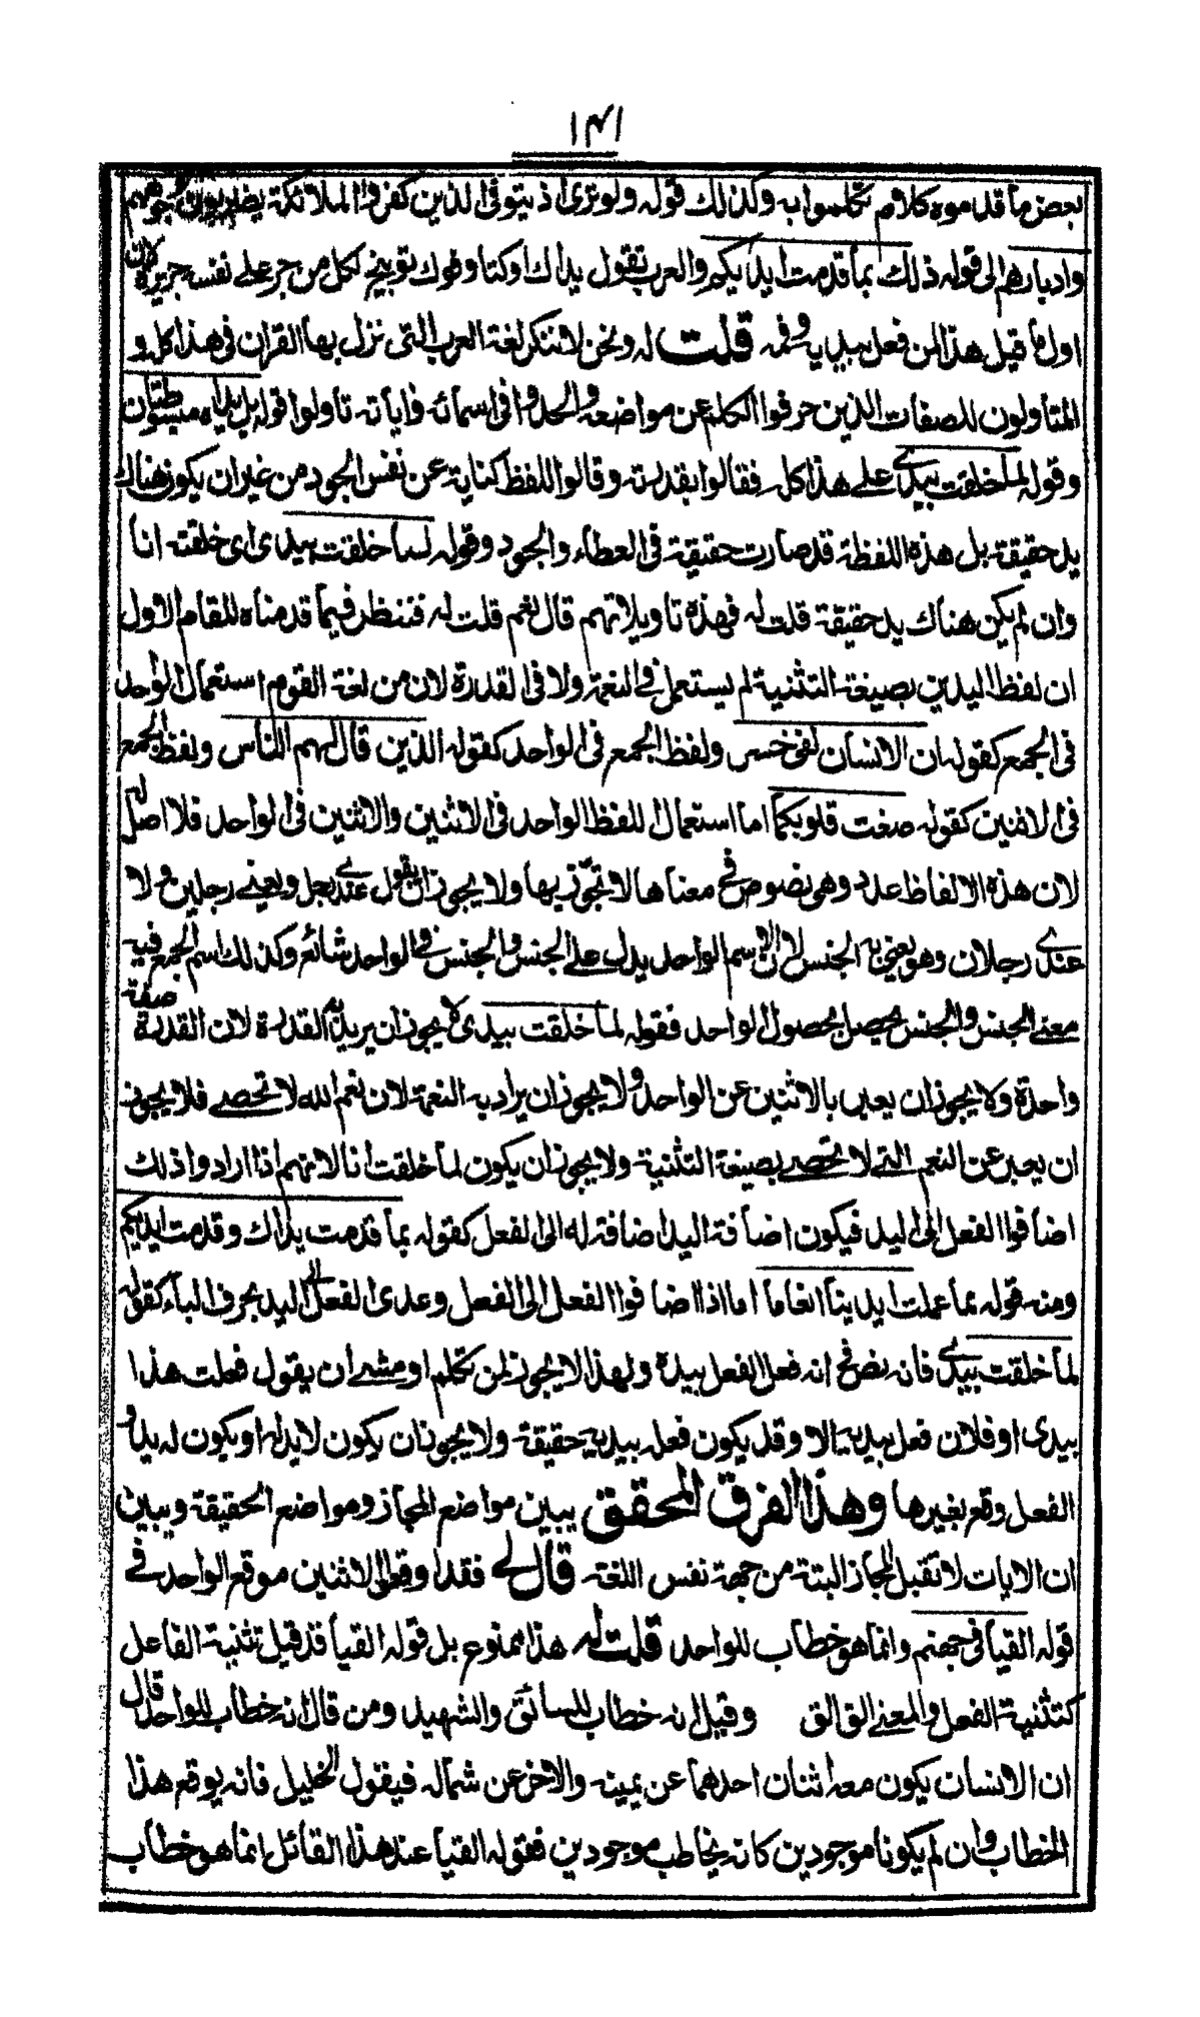 ١٤١
بعض ما قدموه كلام تكلموا به وكذلك قوله ولو ترى اذ يتوفى الذين كفروا الملائكة يضربون وجوههم
وادبارهم الى قوله ذلك بما قدمت ايديكم والعرب تقول يداك اوكتا وفوك نفخ توبيخ لكل من جر على نفسه جريرة لان
اول ما قيل هذا لمن فعل بيديه وفمه قلت له ونحن لا ننكر لغة العرب التى نزل بها القران فى هذا كله و
المتاولون للصفات الذين حرفوا الكلم عن مواضعه والحدوا فى اسمائه واياته تاولوا قوله بل يداه مبسوطتان
وقوله لما خلقت بيدي على هذا كله فقالوا بقدرته وقالوا اللفظ كناية عن نفس الجود من غير ان يكون هناك
يد حقيقة بل هذه اللفظة قد صارت حقيقة فى العطاء والجود وقوله لما خلقت بيدى اى خلقته انا
وان لم يكن هناك يد حقيقة قلت له فهذه تاويلاتهم قال نعم قلت له فننظر فيما قدمناه للمقام الاول
ان لفظ اليدين بصيغة التثنية لم يستعمل فى النعمة ولا فى القدرة لان من لغة القوم استعمال الواحد
فى الجمع كقوله ان الانسان لفى خسر ولفظ الجمع فى الواحد كقوله الذين قال لهم الناس ولفظ الجمع
فى الاثنين كقوله صغت قلوبكما اما استعمال اللفظ الواحد فى الاثنين والاثنين فى الواحد فلا اصل له
لان هذه الالفاظ عدد وهى نصوص فى معناها لا تجوز بها ولا يجوز ان يقول عندي رجل ويعنى رجلين ولا
عندي رجلان وهو يعنى به الجنس لان الاسم الواحد يدل على الجنس والجنس فى الواحد شائع وكذلك اسم الجمع فيه
معنى الجنس والجنس يحصل بحصول الواحد فقوله لما خلقت بيدى لا يجوز ان يريد به القدرة لان القدرة صفة
واحدة ولا يجوز ان يعبر بالاثنين عن الواحد ولا يجوز ان يراد به النعمة لان نعم الله لا تحصى فلا يجوز
ان يعبر عن النعم التى لا تحصى بصيغة التثنية ولا يجوز ان يكون لما خلقت انا لانهم اذا ارادوا ذلك
اضافوا الفعل الى اليد فيكون اضافة اليد اضافة له الى الفعل كقوله بما قدمت يداك وقدمت ايديكم
ومنه قوله مما عملت ايدينا انعاما اما اذا اضافوا الفعل الى الفعل وعدى الفعل الى اليد بحرف الباء كقوله
لما خلقت بيدي فانه نص فى انه فعل الفعل بيده ولهذا لا يجوز لمن تكلم او مشى ان يقول فعلت هذا
بيدى او فلان فعل بيديه الا وقد يكون فعله بيديه حقيقة ولا يجوز ان يكون لا يد له او يكون له يد و
الفعل وقع بغيرها وهذا الفرق المحقق يبين مواضع المجاز ومواضع الحقيقة ويبين
ان الايات لا تقبل المجاز البتة من جهة نفس اللغة قال لى فقد اوقعوا الاثنين موقع الواحد فى
قوله القيا فى جهنم وانما هو خطاب للواحد قلت له هذا ممنوع بل قوله القيا قد قيل تثنية الفاعل
كتثنية الفعل والمعنى الق الق وقيل انه خطاب للسائق والشهيد ومن قال انه خطاب للواحد قال
ان الانسان يكون معه اثنان احدهما عن يمينه والاخر عن شماله فيقول الخليل فانه يوقع هذا
الخطاب وان لم يكونا موجودين كانه يخاطب موجودين فقوله القيا عند هذا القائل انما هو خطاب